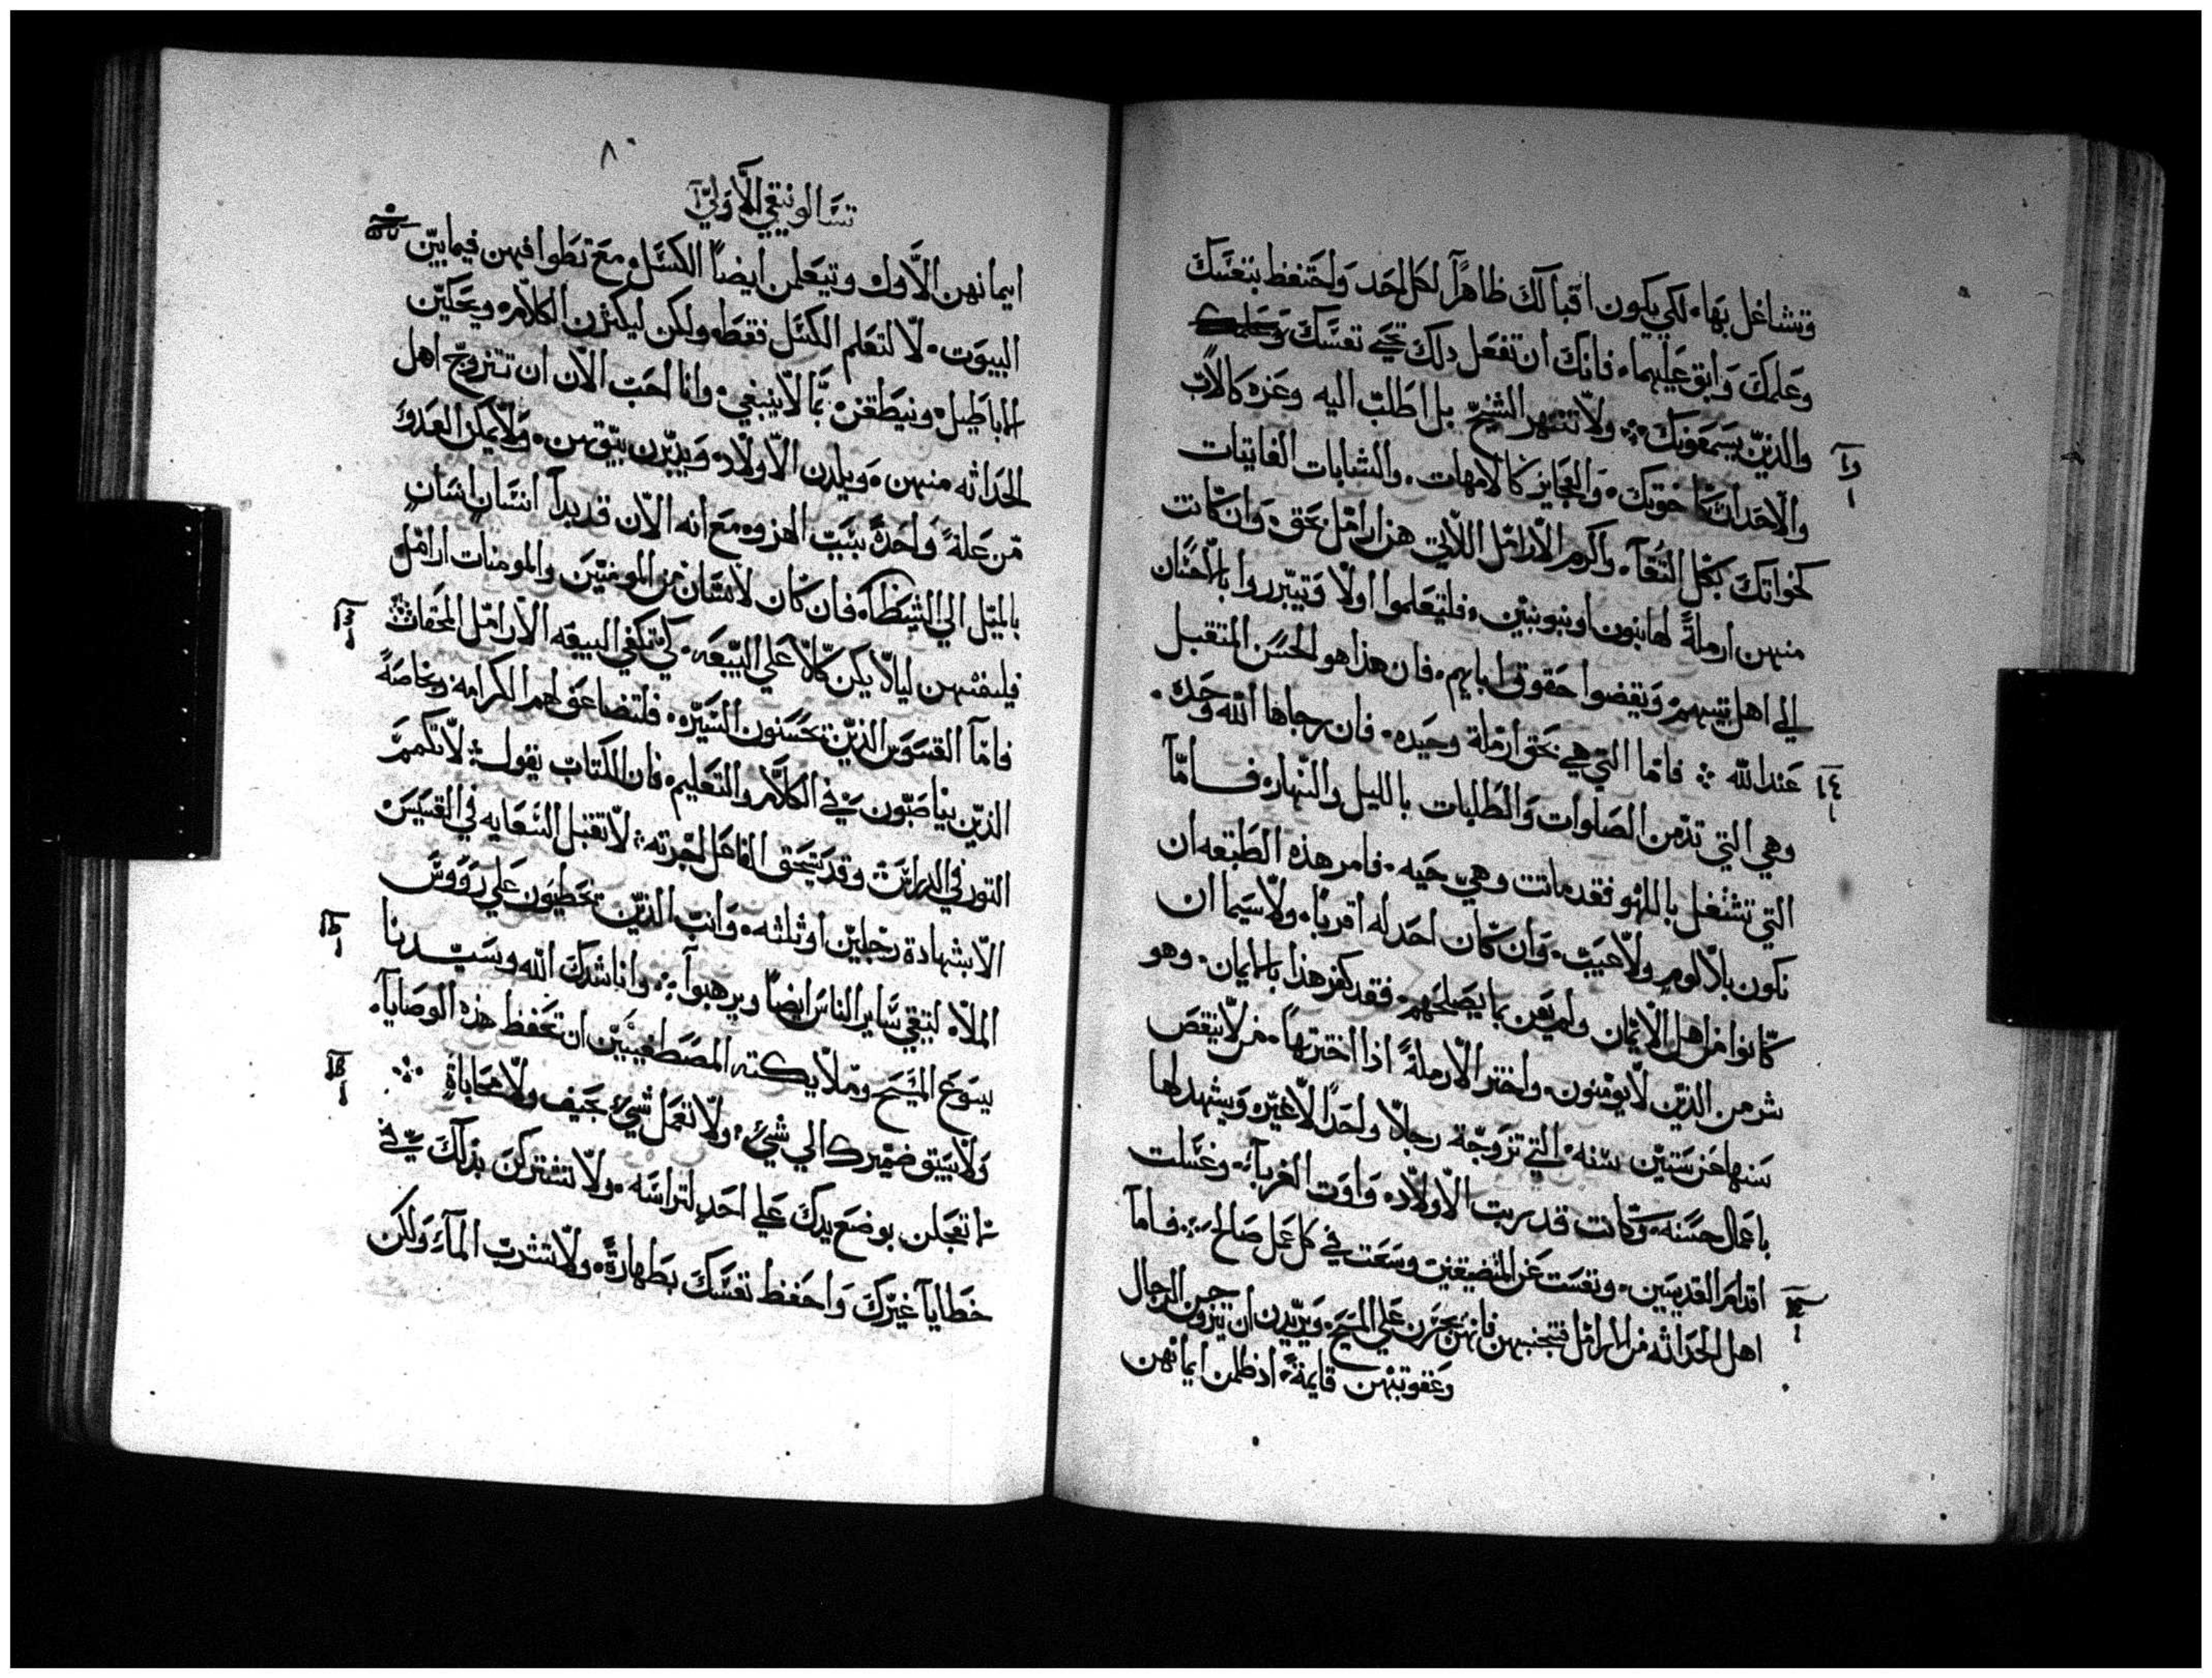 وتشاغل بها۰ لكي يكون اقبالك ظاهرًا لكل احد واحتفظ بنفسك
وعلمك وابق عليهما۰ فانك ان تفعل ذلك تحيي نفسك
والذين يسمعونك۰ ولا تنتهر الشيخ بل اطلب اليه وعزه كالاب
والاحداث كاخوتك۰ والعجايز كالامهات۰ والشابات الفاتيات
كخواتك بكل النقآ۰ واكرم الارامل اللاتي هن ارامل بحق۰ وان كانت
منهن ارملةً لها بنون او بنو بنين۰ فليتعلموا اولًا ويتبرروا بالاحسان
الي اهل بيتهم ويقضوا حقوق ابايهم۰ فان هذا هو الحسن المتقبل
عند الله ۰ فاما التي هي بحق ارملة وحيده۰ فان رجاها الله وحده۰
وهي التي تدمن الصلوات والطلبات بالليل والنهار۰ فاما
التي تشتغل باللهو فقد ماتت وهي حيه۰ فامر هذه الطبقه ان
تكون بلا لوم ولا عيب۰ وان كان احد له اقربا۰ ولا سيما ان
كانوا من اهل الايمان ولم يعن بما يصلحهم۰ فقد كفر هذا بالايمان۰ وهو
شر من الذين لا يومنون۰ واختر الارملةً اذا اخترتها۰ من لا ينقص
سنها عن ستين سنه۰ التي تزوجة رجلًا واحدًا لا غير۰ ويشهد لها
باعمال حسنه۰ وكانت قد ربت الاولاد۰ واوت الغربآ۰ وغسلت
اقدام القديسين۰ ونفست عن المتضيقين وسعت في كل عمل صالح۰ فاما
اهل الحداثه من الارامل فتجنبهن فانهن يجترن علي المسيح۰ ويريدن ان يتزوجن الرجال
وعقوبتهن قايمةً۰ اذ ظلمن ايمانهن
٨۰
تسالونيقي الاولي
ايمانهن الاول وتيعلمن ايضًا الكسل۰ مع تطوافهن فيما بين
البيوت۰ لا لتعلم الكسل فقط۰ ولكن ليكثرن الكلام۰ ويحكين
الاباطيل۰ وينطقن۰ بما لا ينبغي۰ وانا احب الان ان تتزوج اهل
الحداثه منهن۰ ويلدن الاولاد۰ ويدبرن بيوتهن۰ ولا يمكن العدو
من علةً واحدةً بسبب الهزو۰ مع انه الان قد بدآ انسان انسان
بالميل الي الشيطان۰ فان كان لانسان من المومنين والمومنات ارامل
فليقتهن ليلا يكن كلًا علي البيعه۰ لكي تكفي البيعه الارامل المحقات
فاما القسوس الذين يحسنون السيره۰ فلتضاعف لهم الكرامه وبخاصةً
الذين يناصبون في الكلام والتعليم۰ فان الكتاب يقول لا تكمم
الثور في الدراس وقد يستحق الفاعل اجرته۰ لا تقبل السعايه في القسيس
الا بشهادة رجلين او ثلثه۰ وانب الذين يخطيون علي رووس
الملا۰ ليتقي ساير الناس ايضًا ويرهبوا۰ وانا شدك الله وسيدنا
يسوع المسيح وملايكته المصطفيين ان تحفظ هذه الوصايا۰
ولا يسبق ضميرك الي شيء۰ ولا تعمل شيء بحيف ولا محاباةٍ
لا تعجلن بوضع يدك علي احد لتراسه۰ ولا تشتركن بذلك في
خطايا غيرك واحفظ نفسك بطهارة۰ ولا تشرب المآ۰ ولكن